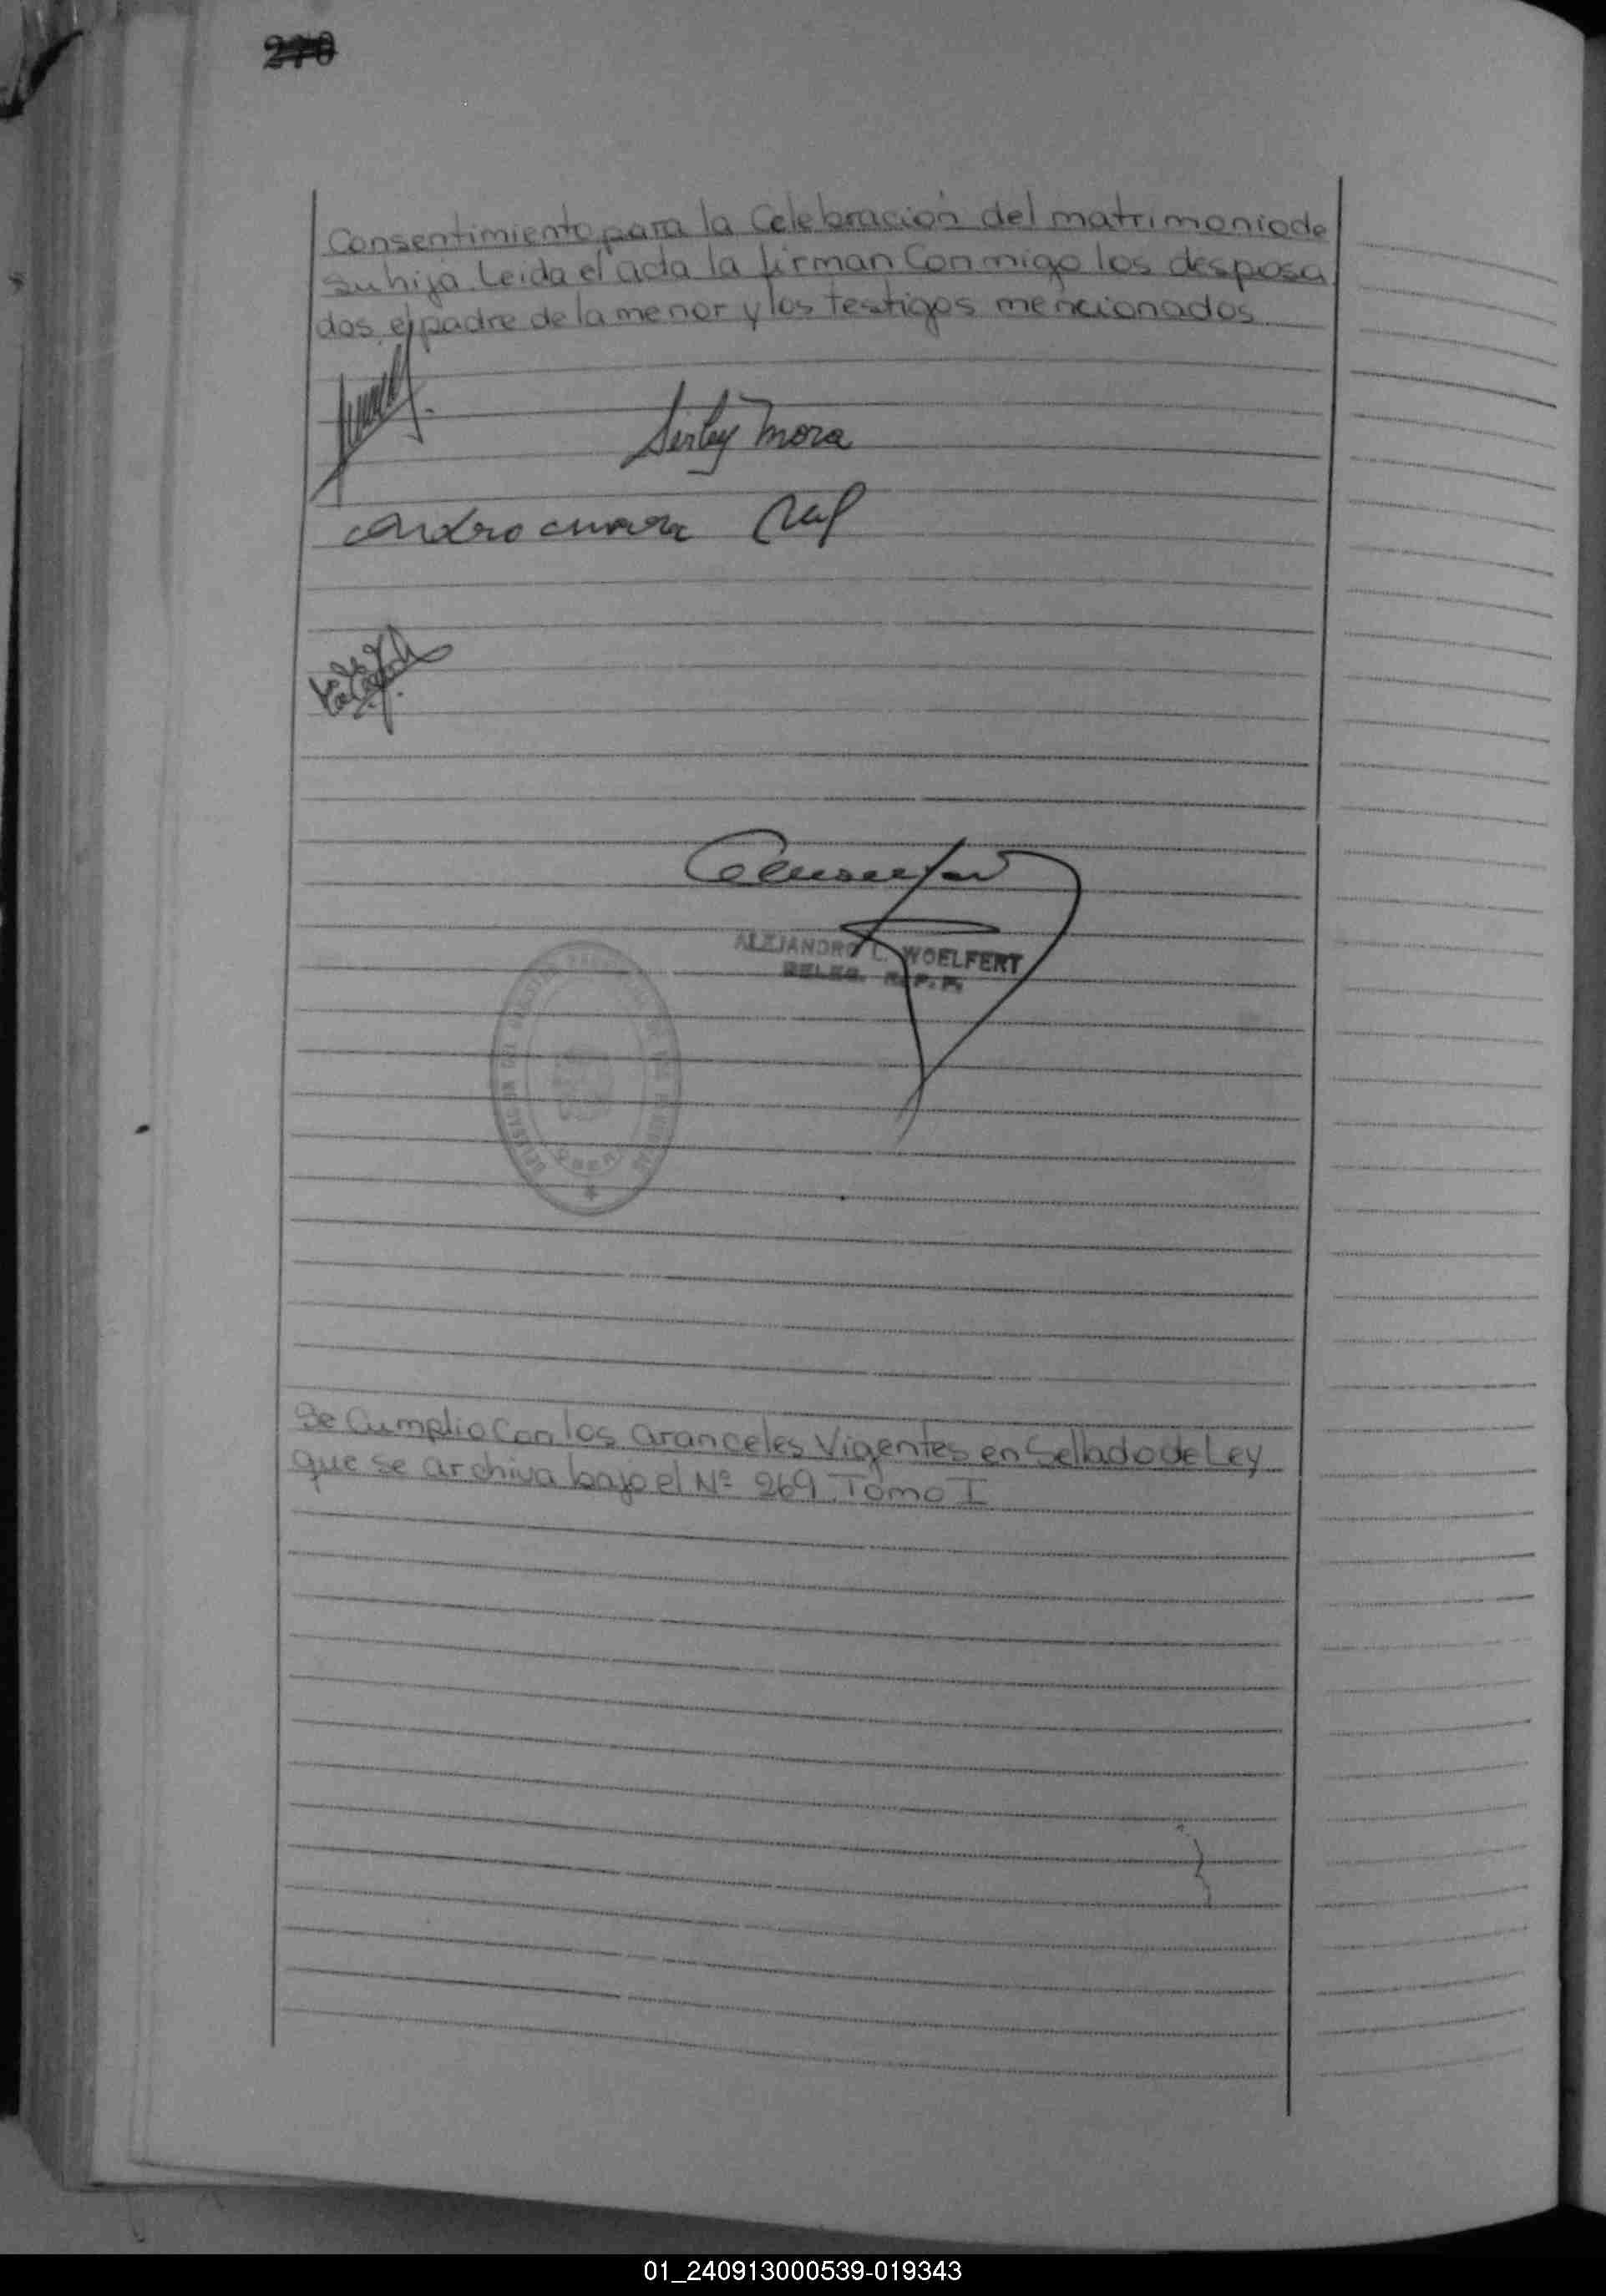 270
Consentimiento para la Celebración del matrimonio de
su hija. Leida el acta la firman Conmigo los desposa
dos, el padre de la menor y los testigos mencionados
Sirley Mora
ALEJANDRO L. WOELFERT
DELEG. R. P. P.
DELEGACION DEL REGISTRO PROVINCIAL DE LAS PERSONAS
OBERA
Se Cumplio Con los aranceles Vigentes en Sellado de Ley
que se archiva bajo el Nº 269. Tomo I
01_240913000539-019343